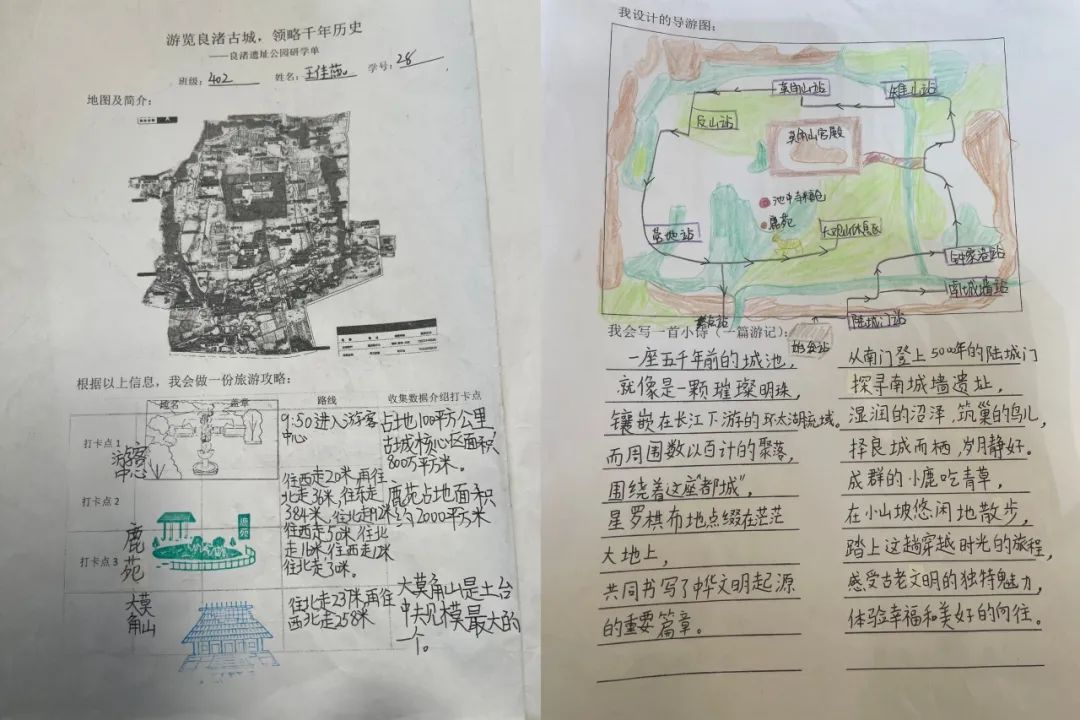 游览良渚古城，领略千年历史
——良渚遗址公园研学单
班级：402 姓名： 学号：28
地图及简介：
根据以上信息，我会做一份旅游攻略：
盖章 路线 收集数据介绍打卡点
打卡点1
游客中心
9:50进入游客
中心
占地100平方公里，
古城核心区面积
800万平方米。
打卡点2
往西走20米，再往
北走36米，往东走
384米，
往西走50米，往北
鹿苑占地面积
约2000平方米
打卡点3
鹿苑
鹿苑
往北走30米。
大莫角山
往北走237米，再往
西北走258米
大莫角山是土台
中夫见模最大的
一个。
我设计的导游图：
莫角山站
雉山站
反山站
莫角山宫殿
池中寺粮仓
鹿苑
大观山休息区
钟家港站
南城墙站
陆城门站
我会写一首小诗（一篇游记）：
一座五千年前的城池，
就像是一颗璀璨明珠，
镶嵌在长江下游的环太湖流域。
而周围数以百计的聚落，
围绕着这座"都城"，
星罗棋布地点缀在茫茫
大地上，
共同书写了中华文明起源
的重要篇章。
从南门登上5000年的陆城门
探寻南城墙遗址，
湿润的沼泽，筑巢的鸟儿，
择良城而栖，岁月静好。
成群的小鹿吃青草，
在小山坡悠闲地散步，
踏上这趟穿越时光的旅程，
感受古老文明的独特魅力，
体验幸福和美好的向往。